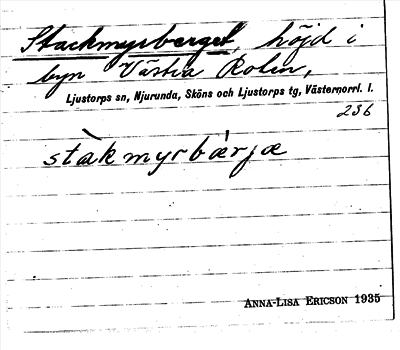 Stackmyrberget, höjd i
byn Västra Rolin,
Ljustorps sn, Njurunda, Sköns och Ljustorps tg, Västernorrl. l.
236
stàkmyrbǽrjæ
ANNA-LISA ERICSON 1935